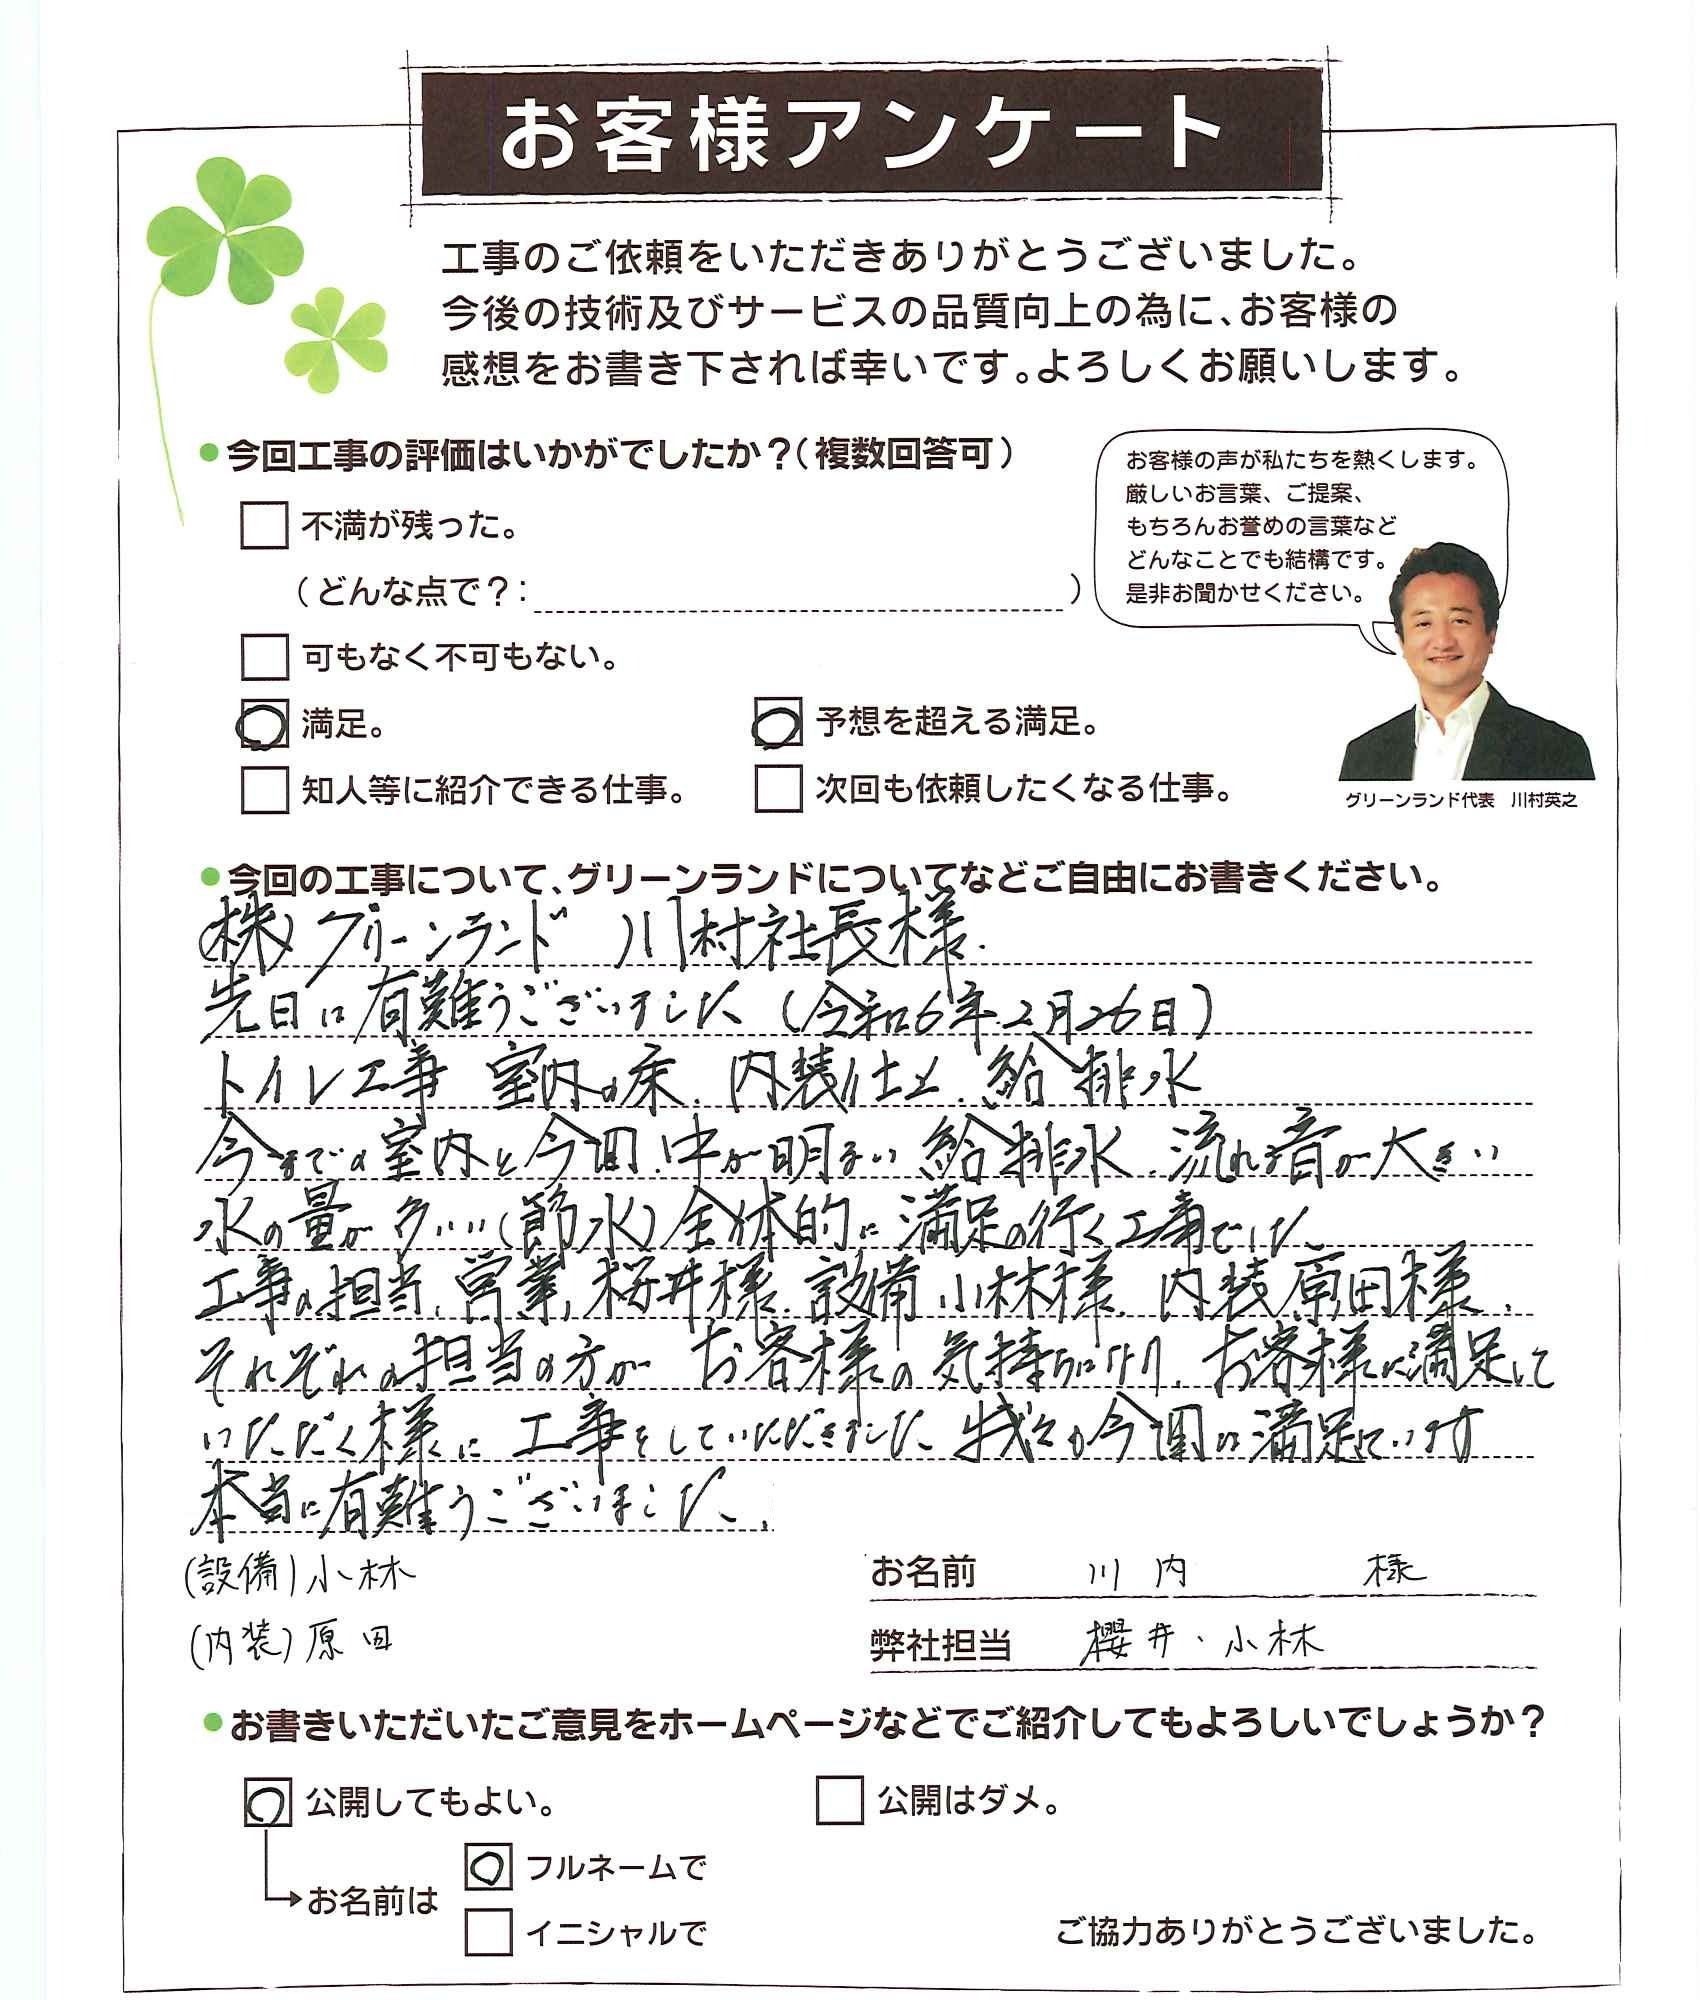 お客様アンケート
工事のご依頼をいただきありがとうございました。
今後の技術及びサービスの品質向上の為に、お客様の
感想をお書き下されば幸いです。よろしくお願いします。
●今回工事の評価はいかがでしたか？（複数回答可）
不満が残った。
（どんな点で？：　）
可もなく不可もない。
満足。
予想を超える満足。
知人等に紹介できる仕事。
次回も依頼したくなる仕事。
お客様の声が私たちを熱くします。
厳しいお言葉、ご提案、
もちろんお誉めの言葉など
どんなことでも結構です。
是非お聞かせください。
グリーンランド代表　川村英之
●今回の工事について、グリーンランドについてなどご自由にお書きください。
(株)グリーンランド 川村社長様.
先日は有難うございました (令和6年2月26日)
トイレ工事 室内の床. 内装仕上. 給排水
今までの室内と今回. 中が明るい 給排水. 流れる音が大きい
水の量が多い (節水) 全体的に満足の行く工事でした
工事の担当. 営業. 桜井様. 設備 小林様. 内装原田様.
それぞれの担当の方が お客様の気持ちになり. お客様に満足して
いただく様に 工事をしていただきました 我々も今回は満足しています
本当に有難うございました.
(設備)小林
(内装)原田
お名前　川内　様
弊社担当　櫻井、小林
●お書きいただいたご意見をホームページなどでご紹介してもよろしいでしょうか？
公開してもよい。
公開はダメ。
お名前は
フルネームで
イニシャルで
ご協力ありがとうございました。